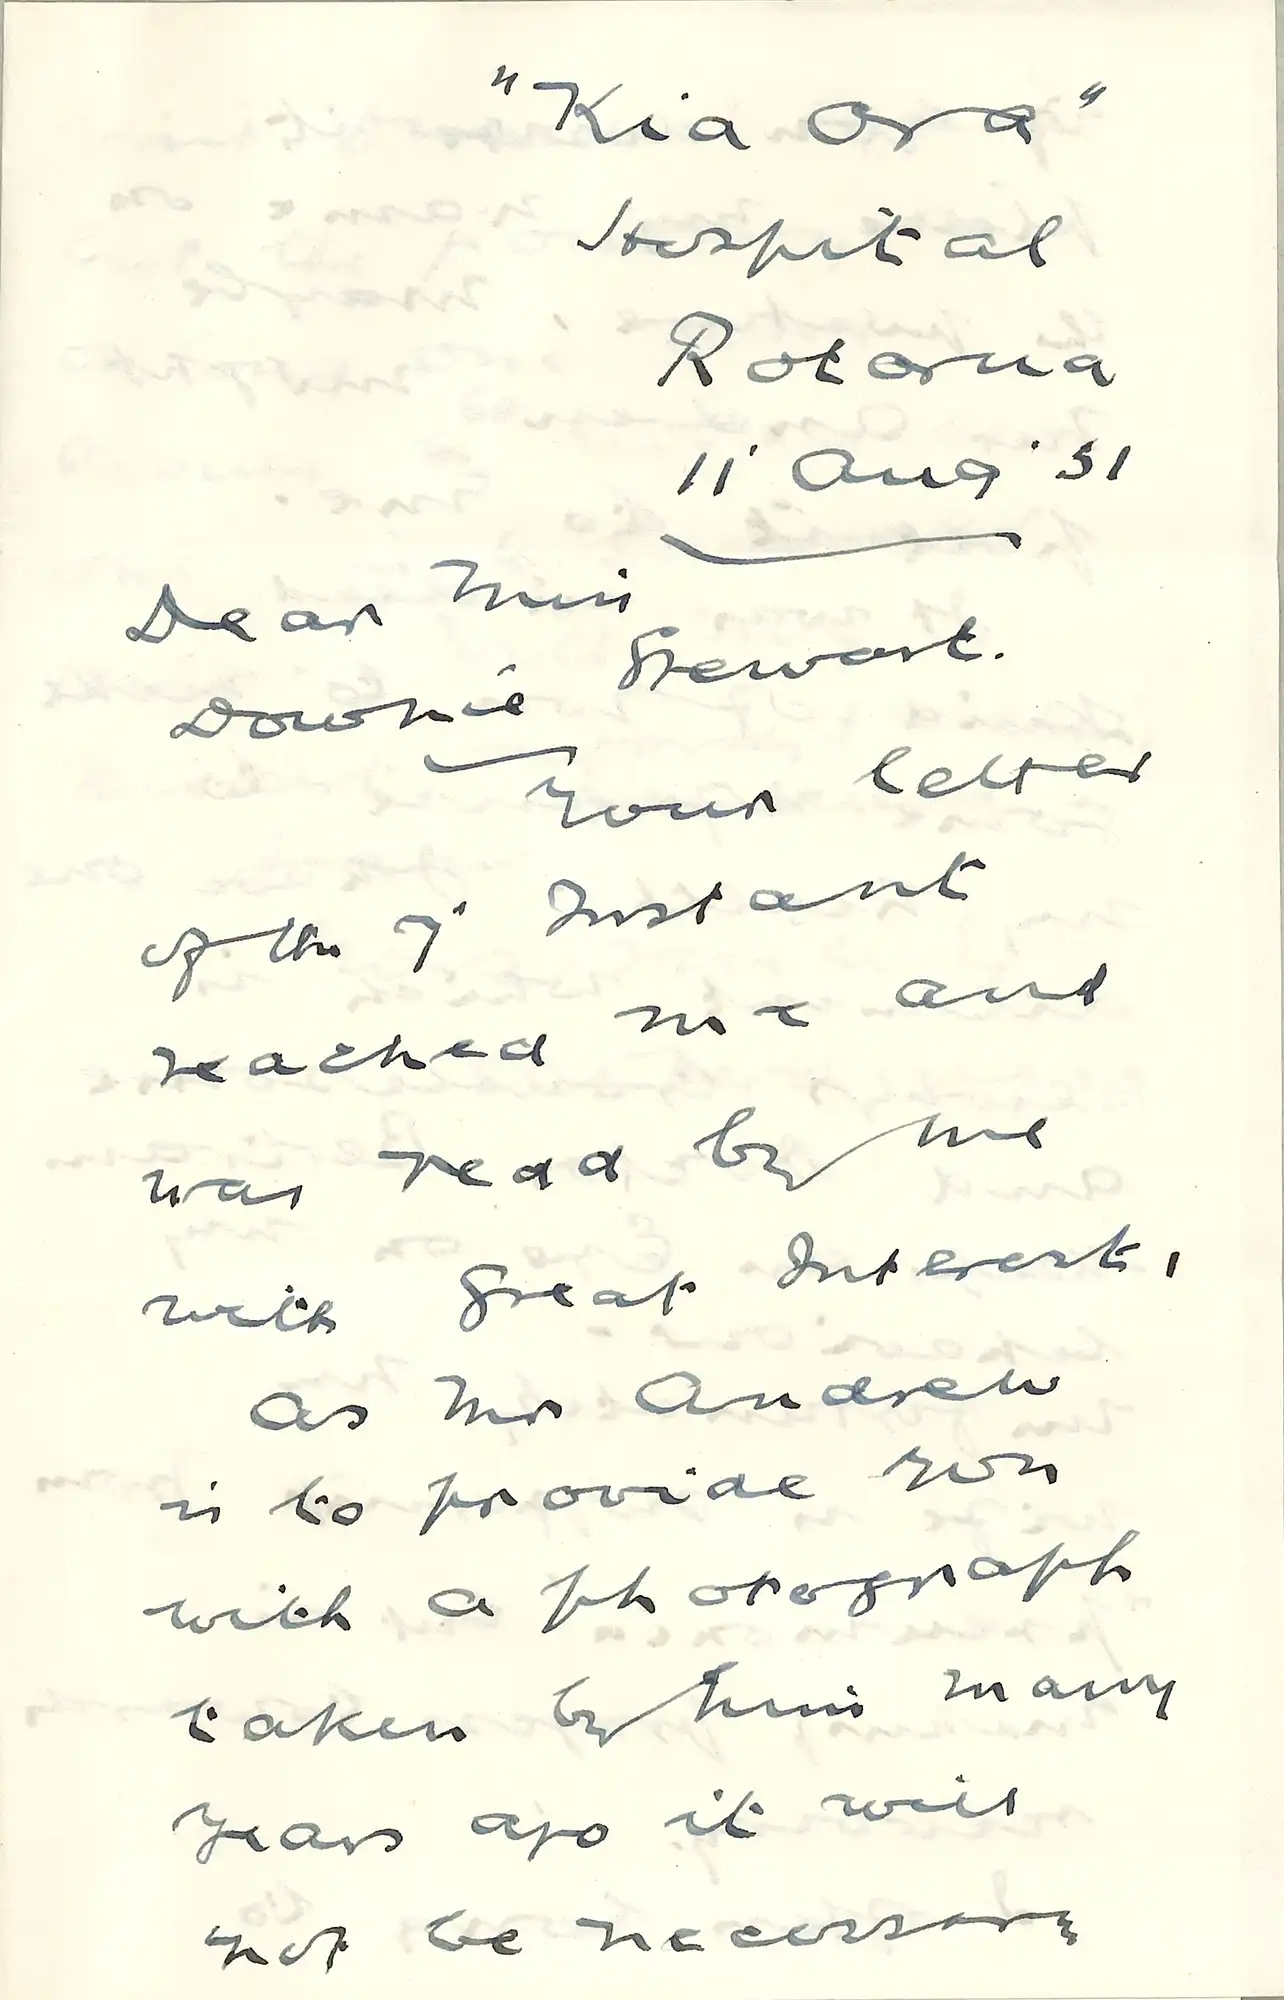 "Kia Ora"
Hospital
Rotorua
11 Aug '31
Dear Miss
Downie Stewart.
Your letter
of the 7' Instant
reached me and
was read by me
with Great Interest,
As Mr Andrew
is to provide you
with a photograph
taken by him many
years ago it will
not be necessary